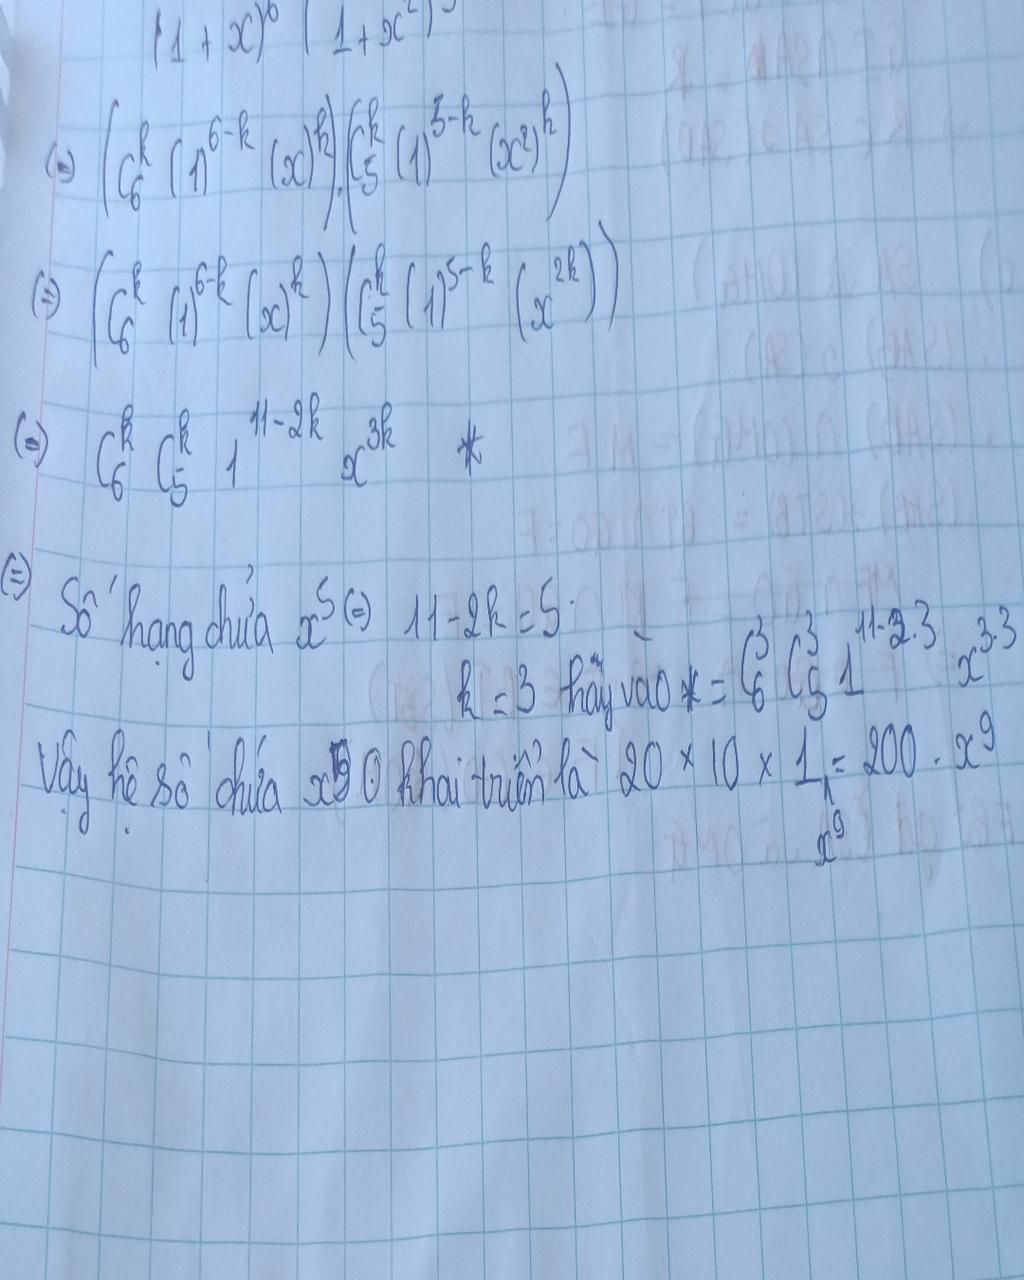 (1+x)⁶ (1+x²)
(=) (C₆ᵏ (1)⁶⁻ᵏ (x)ᵏ).(C₅ᵏ (1)⁵⁻ᵏ (x²)ᵏ)
(=) (C₆ᵏ (1)⁶⁻ᵏ (x)ᵏ)(C₅ᵏ (1)⁵⁻ᵏ (x²ᵏ))
(=) C₆ᵏ C₅ᵏ 1¹¹⁻²ᵏ x³ᵏ *
(=) Số hạng chứa x⁵ (=) 11-2k = 5.
k = 3 thấy vào * = C₆³ C₅³ 1¹¹⁻²·³ x³·³
Vậy hệ số chứa khai triển là 20 × 10 × 1 = 200 . x⁹
x⁹